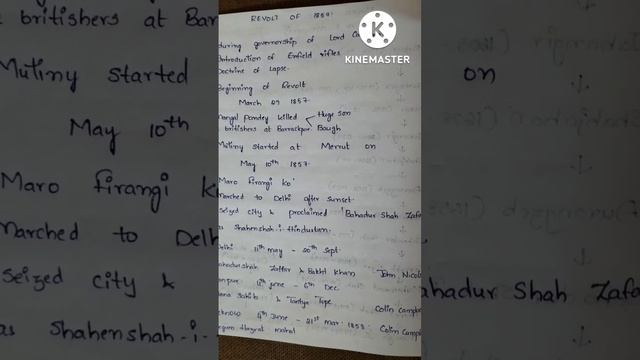 REVOLT OF 1857:
during governorship of Lord
Introduction of Enfield rifles
Doctrine of Lapse.
Beginning of Revolt
March 29 1857.
Mangal Pandey killed Huge son
britishers at Barrackpur Baugh
Mutiny started at Merrut on
May 10th 1857.
Maro firangi ko
marched to Delhi after sunset.
Seized city & proclaimed Bahadur Shah Zafa
as Shahenshah-i-Hindustan.
Delhi 11th may - 20th Sept.
Bahadurshah Zaffar & Bakht Khan John Nicol
Kanpur 4th June - 6th Dec.
Nana Sahib & Tantya Tope Colin Campbe
4th June - 21st Mar 1858 Colin Camp
Begum Hazrat mahal
KINEMASTER
britishers at Bar
Mutiny started on
May 10th
Maro firangi k
marched to Delh
Seized city & ahadur Shah Zafa
as Shahenshah-i-